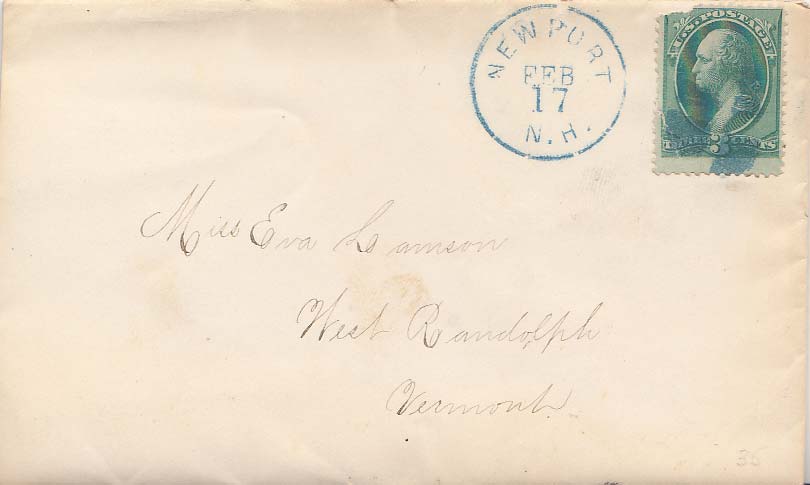 NEWPORT
FEB
17
N.H.
U.S. POSTAGE
THREE 3 CENTS
Miss Eva Lamson
West Randolph
Vermont
35